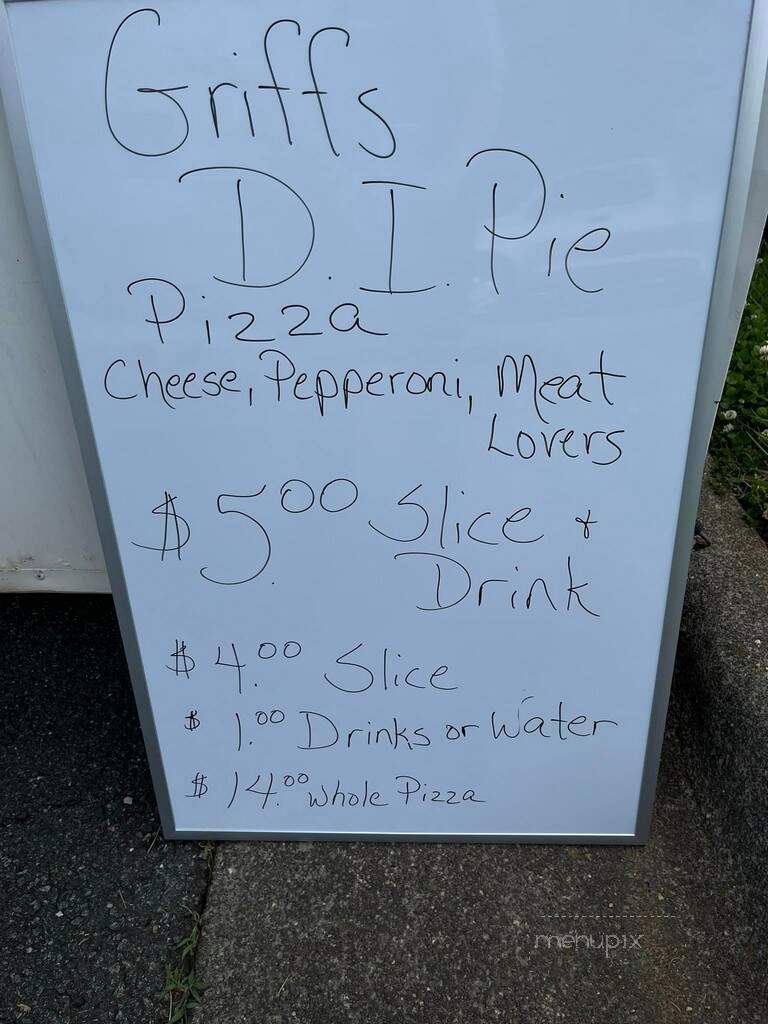 Griffs
D.I. Pie
Pizza
Cheese, Pepperoni, Meat
Lovers
$5.00 Slice +
Drink
$4.00 Slice
$1.00 Drinks or Water
$14.00 Whole Pizza
menupix